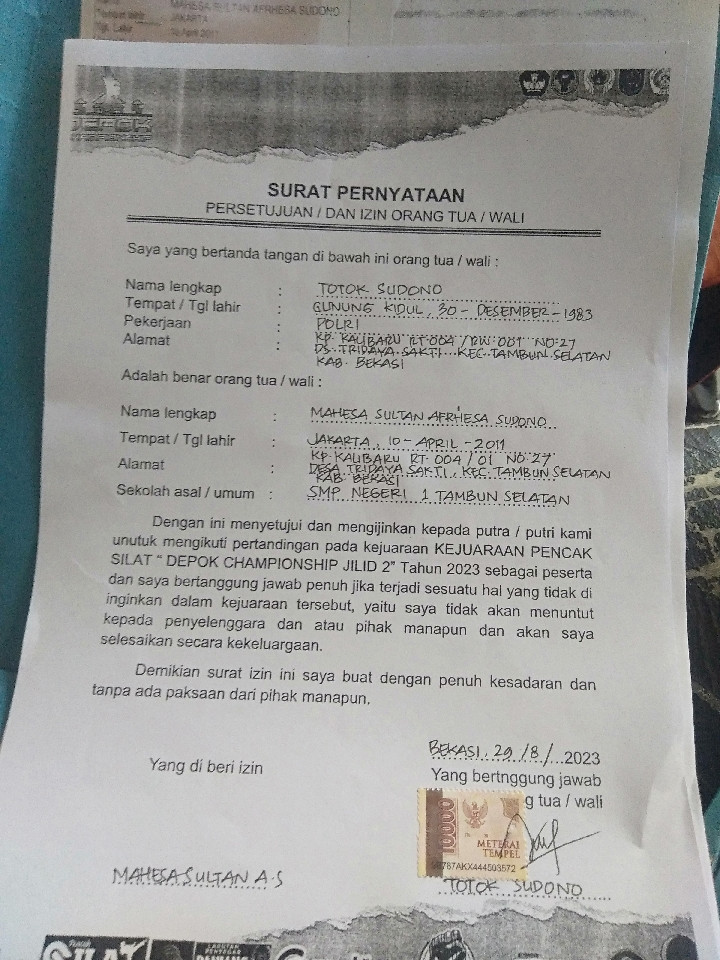 MAHESA SULTAN AFRHESA SUDONO
JAKARTA
Tgl. Lahir
DEPOK
SURAT PERNYATAAN
PERSETUJUAN / DAN IZIN ORANG TUA / WALI
Saya yang bertanda tangan di bawah ini orang tua / wali :
Nama lengkap : TOTOK SUDONO
Tempat / Tgl lahir : GUNUNG KIDUL, 30 - DESEMBER - 1983
Pekerjaan : POLRI
Alamat : KP. KALIBARU RT 004 / RW. 001 NO: 27
DS. TRIDAYA SAKTI KEC. TAMBUN SELATAN
KAB. BEKASI
Adalah benar orang tua / wali :
Nama lengkap : MAHESA SULTAN AFRHESA SUDONO
Tempat / Tgl lahir : JAKARTA, 10 - APRIL - 2011
Alamat : KP. KALIBARU RT 004 / 01 NO: 27
DESA TRIDAYA SAKTI, KEC. TAMBUN SELATAN
KAB BEKASI
Sekolah asal / umum : SMP NEGERI 1 TAMBUN SELATAN
Dengan ini menyetujui dan mengijinkan kepada putra / putri kami
unutuk mengikuti pertandingan pada kejuaraan KEJUARAAN PENCAK
SILAT “ DEPOK CHAMPIONSHIP JILID 2” Tahun 2023 sebagai peserta
dan saya bertanggung jawab penuh jika terjadi sesuatu hal yang tidak di
inginkan dalam kejuaraan tersebut, yaitu saya tidak akan menuntut
kepada penyelenggara dan atau pihak manapun dan akan saya
selesaikan secara kekeluargaan.
Demikian surat izin ini saya buat dengan penuh kesadaran dan
tanpa ada paksaan dari pihak manapun.
BEKASI, 29 / 8 / 2023
Yang di beri izin
Yang bertnggung jawab
g tua / wali
10000
METERAI
TEMPEL
787AKX444503572
MAHESA SULTAN A.S
TOTOK SUDONO
Pencak
SILAT